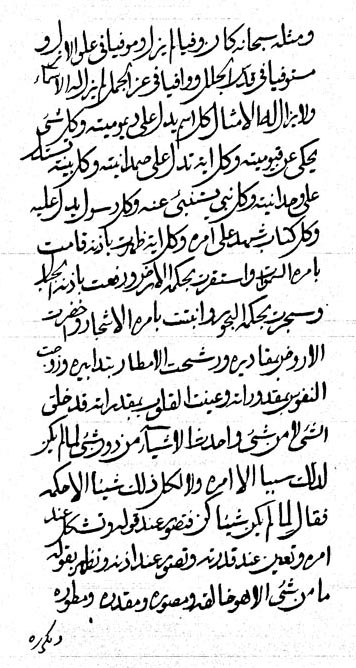 ومثله سبحانه كان وفيا لم يزل وموفيا في علو الازل و
مستوفيا في قدس الجلال ووافيا في عز الجمال لم يزل له الاسماء
ولا يزال له الامثال كل اسم يدل على ديموميته وكل شئ
يحكي عن قيوميته وكل اية تدل على صمدانيته وكل بينة تستدل
على وحدانيته وكل نبي يستنبئ عنه وكل رسول يدل عليه
وكل كتاب شهد على امره وكل اية ظهرت باذنه قامت
بامره السموات واستقرت بحكمه الارض ورفعت باذنه الجبال
وسجرت بحكمه البحور وانبتت بامره الاشجار واخضرت
الاروض بمقاديره ورشحت الامطار بتدابيره وزوجت
النفوس بمقدوراته وعينت القلوب بمقدراته قد خلق
الشئ لا من شئ واحدث الاشياء من دون شئ لما لم يكن
لذلك سببا الا امره ولا لكل ذلك شيئا الا حكمه
فقال لما لم يكن شيئا كن فتصور عند قوله وتشكل عند
امره وتعين عند قدرته وتقضى عند اذنه وتظهر بقوله
ما من شئ الا هو خالقه ومصوره ومقدره ومطوره